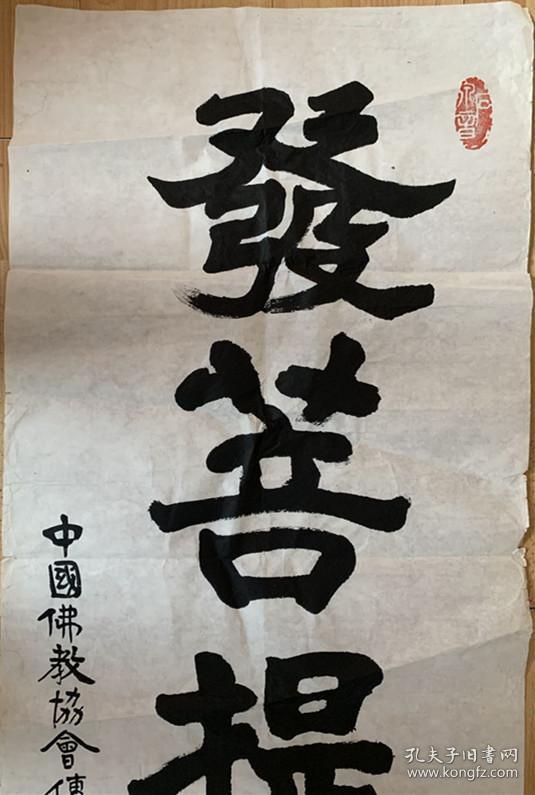 發菩提
中國佛教協會傳
孔夫子旧书网
www.kongfz.com